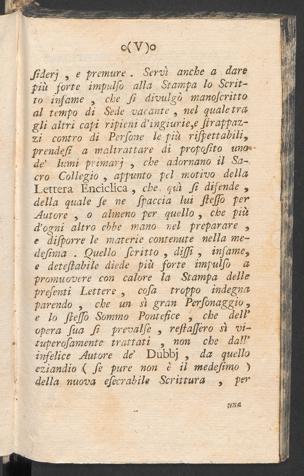 o(V)o
ſiderj , e premure . Servì anche a dare
più forte impulſo alla Stampa lo Scrit-
to infame , che ſi divulgò manoſcritto
al tempo di Sede vacante , nel quale tra
gli altri capi ripieni d'ingiurie, e ſtrapaz-
zi contro di Perſone le più riſpettabili,
prendeſi a maltrattare di propoſito uno
de' lumi primarj , che adornano il Sa-
cro Collegio , appunto pel motivo della
Lettera Enciclica , che quì ſi difende ,
della quale ſe ne ſpaccia lui ſteſſo per
Autore , o almeno per quello , che più
d'ogni altro ebbe mano nel preparare ,
e diſporre le materie contenute nella me-
deſima . Quello ſcritto , diſſi , infame,
e deteſtabile diede più forte impulſo a
promuovere con calore la Stampa delle
preſenti Lettere , coſa troppo indegna
parendo , che un sì gran Perſonaggio ,
e lo ſteſſo Sommo Pontefice , che dell'
opera ſua ſi prevalſe , reſtaſſero sì vi-
tuperoſamente trattati , non che dall'
infelice Autore de' Dubbj , da quello
eziandio ( ſe pure non è il medeſimo )
della nuova eſecrabile Scrittura , per
una